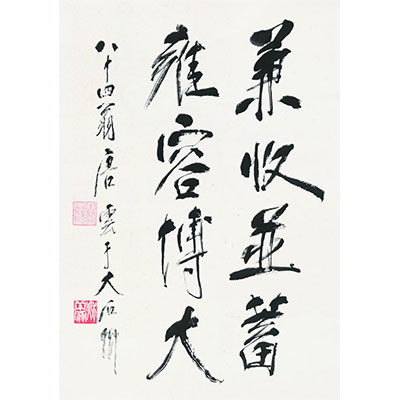 兼收並蓄
雍容博大
八十四翁唐雲于大石斋